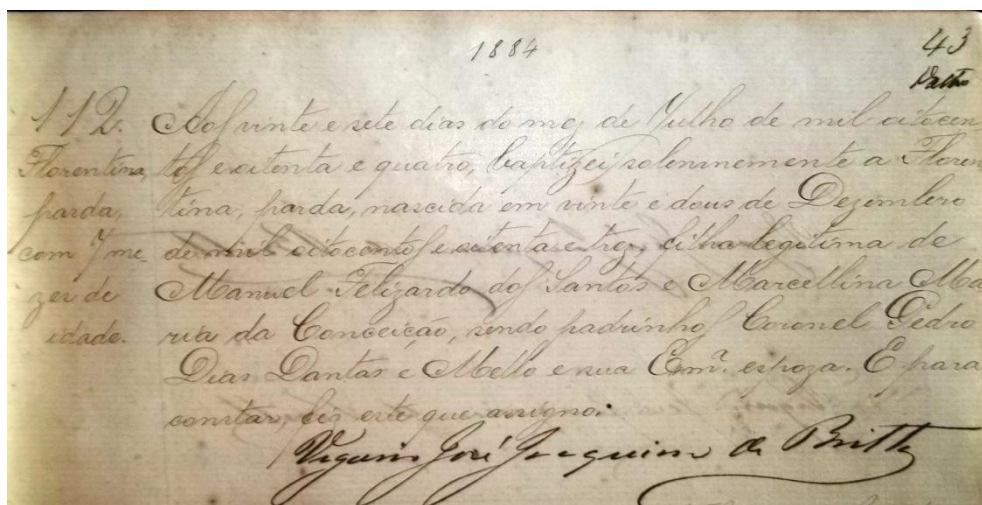 1884
43
112. Aos vinte e sete dias do mez de Julho de mil oitocen-
Florentina, tos e oitenta e quatro, baptizei solennemente a Floren
parda, tina, parda, nascida em vinte e dous de Dezembro
com 7 me- de mil oitocentos e oitenta e trez, filha legitima de
zes de Manuel Felizardo dos Santos e Marcellina Ma
idade. ria da Conceição, sendo padrinhos Coronel Pedro
Dias Dantas e Mello e sua Em.ª espoza. E para
constar, fiz este que assigno.
Vigario José Joaquim de Britto